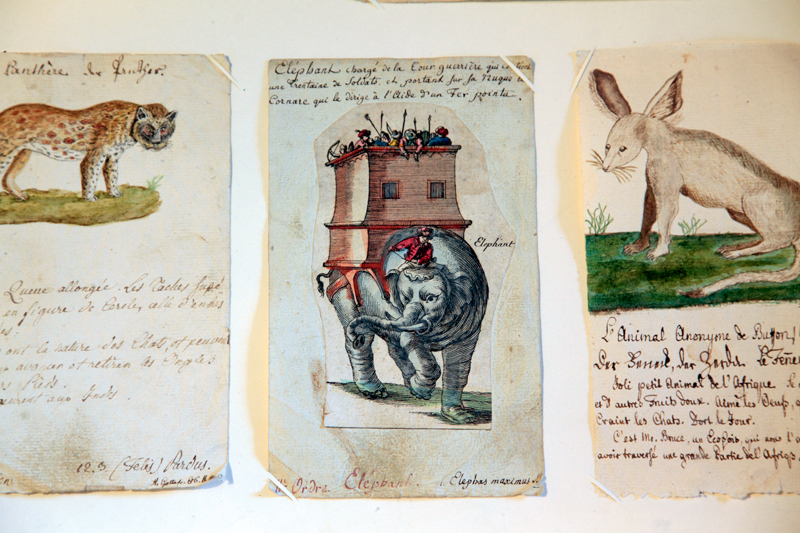 Panthère de
Queue allongée. Les Taches
en figure de Cercle,
ont la nature des Chats, et peuvent
avancer et retirer les Ongles
Pieds.
aux Indes
12. 3 (Felis) Pardus.
Eléphant chargé de la Tour guerrière qui contient
une trentaine de Soldats, et portant sur sa Nuque
Cornare qui le dirige à l'Aide d'un Fer pointu.
Elephant
Ordre Eléphant. Elephas maximus
L'Animal Anonyme de Buffon,
der Zerda. Le Fenec
Joli petit Animal de l'Afrique.
et d'autres Fruits doux. Aime les Oeufs,
Craint les Chats. Dort le Jour.
C'est Mr. Bruce, un Ecossois, qui nous l'a
avoir traversé une grande Partie de l'Afrique